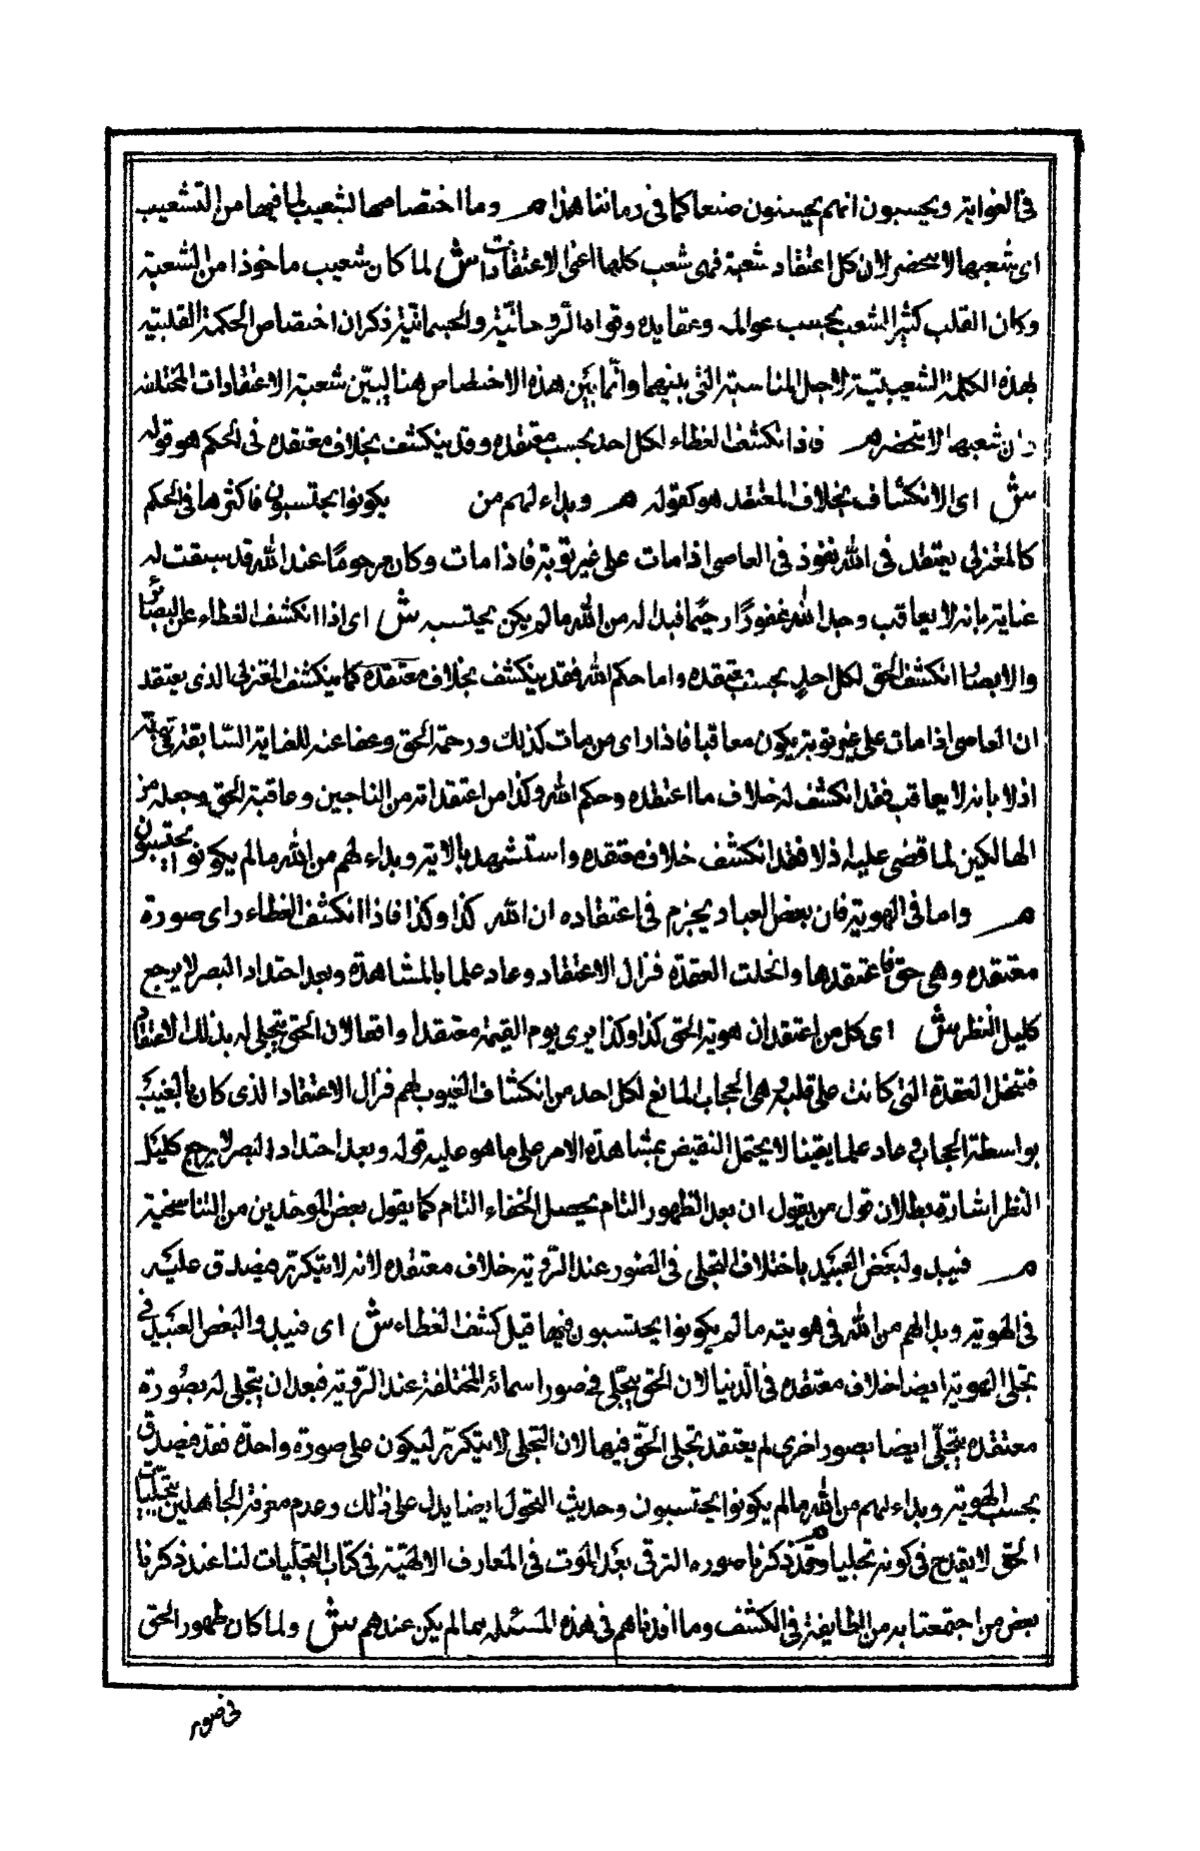 فى الغواية ويحسبون انهم يحسنون صنعا كما فى زماننا هذا م وما اختصاصها لشعيب لما فيها من التشعيب
اى شعبها لا ينحضر لان كل اعتقاد شعبة فهى شعب كلها اعنى الاعتقادات ش لما كان شعيب ماخوذا من الشعبة
وكان القلب كثير الشعب بحسب عوالمه وعقايده وقواه الروحانية والجسمانية ذكر ان اختصاص الحكمة القلبية
بهذه الكلمة الشعيبية لاجل المناسبة التى بينهما وانما بين هذه الاختصاص هنا ليبين شعبة الاعتقادات المختلفه
وان شعبها لا تنحضر م فاذا انكشف الغطاء لكل احد بحسب معتقده وقد ينكشف بخلاف معتقده فى الحكم هو قوله
ش اى الانكشاف بخلاف المعتقد هو كقوله م وبداء لهم من يكونوا يحتسبون فاكثرها فى الحكم
كالمعتزلى يعتقد فى الله نفوذ فى العاصى اذا مات على غير توبة فاذا مات وكان مرحوما عند الله قد سبقت له
عناية بانه لا يعاقب وجد الله غفورا رحيما فبدا له من الله ما لم يكن يحتسبه ش اى اذا انكشف الغطاء عن البصائر
والابصار انكشف الحق لكل احد بحسب معتقده واما حكم الله فقد ينكشف بخلاف معتقده كما ينكشف المعتزلى الذى يعتقد
ان العاصى اذا مات على غير توبة يكون معاقبا فاذا راى من مات كذلك ورحمة الحق وعفا عنه للعناية السابقة فى حقه
اذلا بانه لا يعاقب فقد انكشف له خلاف ما اعتقده وحكم الله وكذا من اعتقد انه من الناجين وعاقبة الحق وجعله من
الهالكين لما قضى عليه اذلا فقد انكشف خلاف معتقده واستشهد بالاية وبداء لهم من الله ما لم يكونوا يحتسبون
م واما فى الهوية فان بعض العباد يجزم فى اعتقاده ان الله كذا وكذا فاذا انكشف الغطاء راى صورة
معتقده وهى حق فاعتقدها وانحلت العقدة فزال الاعتقاد وعاد علما بالمشاهدة وبعد احتداد البصر لا يرجع
كليل النظر ش اى كل من اعتقد ان هوية الحق كذا وكذا يرى يوم القيمة معتقدا واقعا لان الحق يتجلى له بذلك الاعتقاد
فتنحل العقدة التى كانت على قلبه وهى الحجاب المانع لكل احد من انكشاف الغيوب لهم فزال الاعتقاد الذى كان بالغيب
بواسطة الحجاب وعاد علما يقينا لا يحتمل النقيض بمشاهدة الامر على ما هو عليه قوله وبعد احتداد البصر لا يرجع كليل
النظر اشارة بطلان قول من يقول ان بعد الظهور التام يحصل الخفاء التام كما يقول بعض الموحدين من التناسخية
م فيبد ولبعض العبيد باختلاف التجلى فى الصور عند الروية خلاف معتقده لانه لا يتكرر فيصدق عليه
فى الهوية وبدا لهم من الله فى هويته ما لم يكونوا يحتسبون فيها قبل كشف الغطاء ش اى فيبدو البعض العبيد فى
تجلى الهوية ايضا خلاف معتقده فى الدنيا لان الحق يتجلى فى صور اسمائه المختلفة عند الروية فبعد ان يتجلى له بصورة
معتقده يتجلى ايضا بصور اخرى لم يعتقد تجلى الحق فيها لان التجلى لا يتكرر ليكون على صورة واحدة فقد فيصدق
بحسب الهوية وبداء لهم من الله ما لم يكونوا يحتسبون وحديث التحول ايضا يدل على ذلك وعدم معرفة الجاهلين بتجليات
الحق لا يقدح فى كونه تجليا م وقد ذكرنا صوره الترقى بعد الموت فى المعارف الالهية فى كتاب التجليات لنا عند ذكرنا
بعض من اجتمعنا به من الطايفة فى الكشف وما افدناهم فى هذه المسئله مما لم يكن عندهم ش ولما كان ظهور الحق
فى صور